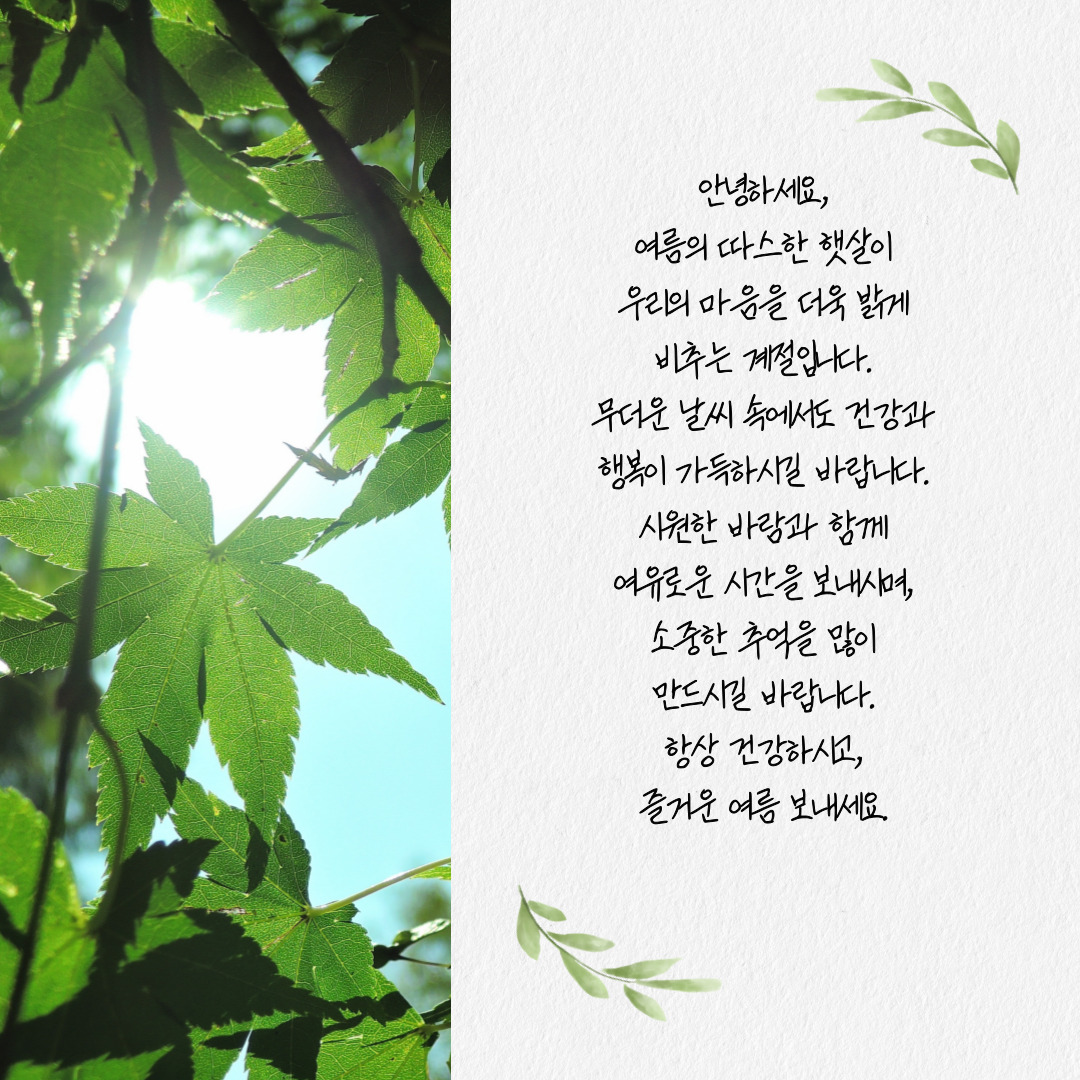 안녕하세요,
여름의 따스한 햇살이
우리의 마음을 더욱 밝게
비추는 계절입니다.
무더운 날씨 속에서도 건강과
행복이 가득하시길 바랍니다.
시원한 바람과 함께
여유로운 시간을 보내시며,
소중한 추억을 많이
만드시길 바랍니다.
항상 건강하시고,
즐거운 여름 보내세요.